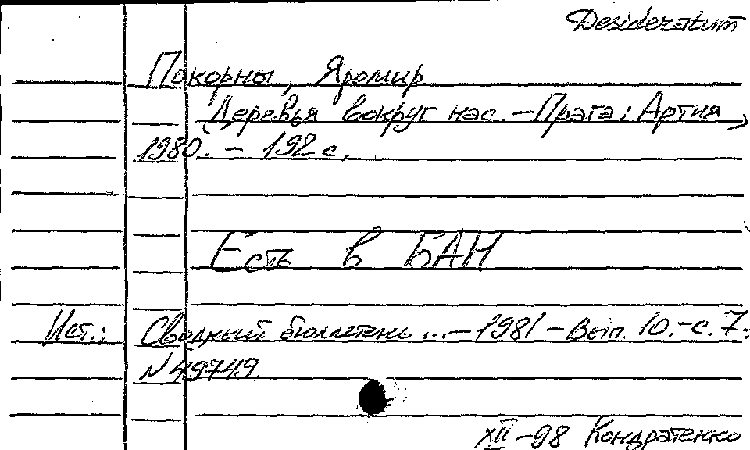 Desideratum
Покорны, Яромир
Деревья вокруг нас. – Прага: Артия,
1980. – 192 с.
Есть в БАН
Ист.: Сводный бюллетень ... – 1981 – Вып. 10. – с. 7.
N 49749
XII – 98 Кондратенко